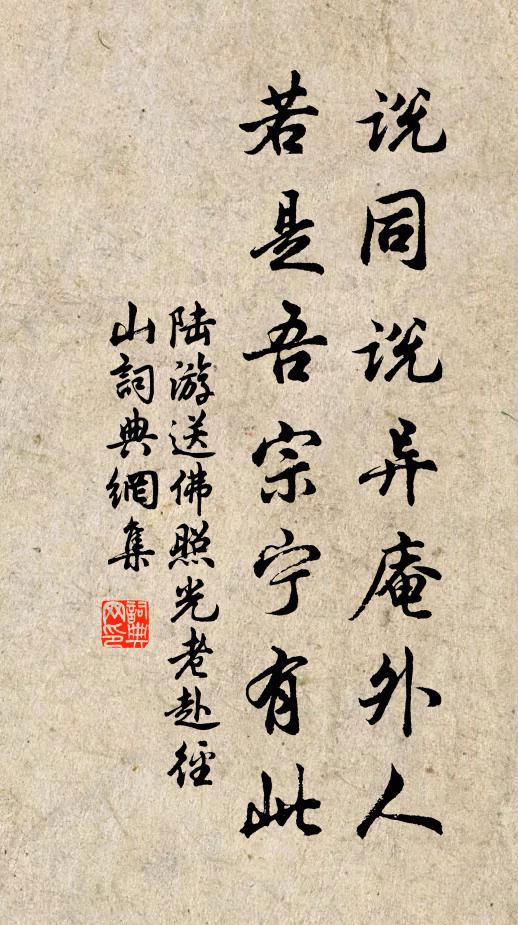 说同说异庵外人
若是吾宗宁有此
陆游送佛照光老赴径
山詞典網集
詞典网印